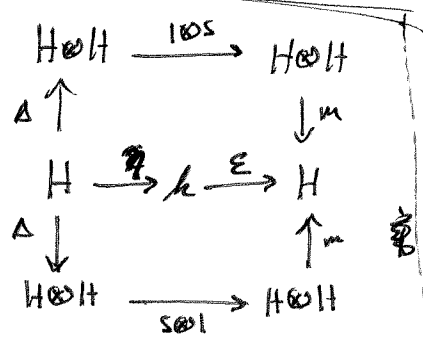 H⊗H 1⊗S H⊗H
Δ m
H η k ε H
Δ m
H⊗H S⊗1 H⊗H